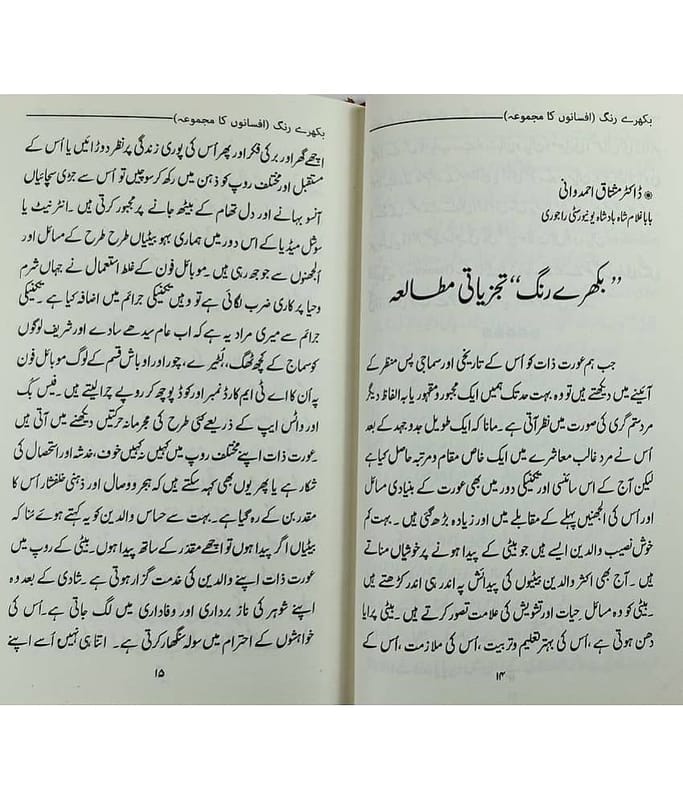 بکھرے رنگ (افسانوں کا مجموعہ)
ڈاکٹر مشتاق احمد وانی
بابا غلام شاہ بادشاہ یونیورسٹی راجوری
”بکھرے رنگ“ تجزیاتی مطالعہ
جب ہم عورت ذات کو اُس کے تاریخی اور سماجی پس منظر کے
آئینے میں دیکھتے ہیں تو وہ بہت حد تک ہمیں ایک مجبور و مقہور یا بہ الفاظ دیگر
مردِ ستم گری کی صورت میں نظر آتی ہے۔ مانا کہ ایک طویل جدوجہد کے بعد
اُس نے مرد غالب معاشرے میں ایک خاص مقام و مرتبہ حاصل کیا ہے
لیکن آج کے اس سائنسی اور تکنیکی دور میں بھی عورت کے بنیادی مسائل
اور اُس کی اُلجھنیں پہلے کے مقابلے میں اور زیادہ بڑھ گئی ہیں۔ بہت کم
خوش نصیب والدین ایسے ہیں جو بیٹی کے پیدا ہونے پر خوشیاں مناتے
ہیں۔ آج بھی اکثر والدین بیٹیوں کی پیدائش پہ اندر ہی اندر کڑھتے ہیں
۔ بیٹی کو وہ مسائلِ حیات اور تشویش کی علامت تصور کرتے ہیں۔ بیٹی پرایا
دھن ہوتی ہے، اُس کی بہتر تعلیم و تربیت، اُس کی ملازمت، اُس کے
۱۴
بکھرے رنگ (افسانوں کا مجموعہ)
اچھے گھر اور بر کی فکر اور پھر اُس کی پوری زندگی پر نظر دوڑائیں یا اُس کے
مستقبل اور مختلف روپ کو ذہن میں رکھ کر سوچیں تو اُس سے جڑی سچائیاں
آنسو بہانے اور دل تھام کے بیٹھ جانے پر مجبور کرتی ہیں۔ انٹرنیٹ یا
سوشل میڈیا کے اس دور میں ہماری بہو بیٹیاں طرح طرح کے مسائل اور
اُلجھنوں سے جوجھ رہی ہیں۔ موبائل فون کے غلط استعمال نے جہاں شرم
و حیا پر کاری ضرب لگائی ہے تو وہیں تکنیکی جرائم میں اضافہ کیا ہے۔ تکنیکی
جرائم سے میری مراد یہ ہے کہ اب عام سیدھے سادے اور شریف لوگوں
کو سماج کے کچھ ٹھگ، لُٹیرے، چور اور اوباش قسم کے لوگ موبائل فون
پہ اُن کا اے ٹی ایم کارڈ نمبر اور کوڈ پوچھ کر روپے چرا لیتے ہیں۔ فیس بُک
اور واٹس ایپ کے ذریعے بھی کئی طرح کی مجرمانہ حرکتیں دیکھنے میں آتی ہیں
۔ عورت ذات اپنے مختلف روپ میں کہیں نہ کہیں خوف، خدشہ اور استحصال کی
شکار ہے یا پھر یوں بھی کہہ سکتے ہیں کہ ہجر و وصال اور ذہنی خلفشار اُس کا
مقدر بن کے رہ گیا ہے۔ بہت سے حساس والدین کو یہ کہتے ہوئے سُنا کہ
بیٹیاں اگر پیدا ہوں تو اچھے مقدر کے ساتھ پیدا ہوں۔ بیٹی کے روپ میں
عورت ذات اپنے والدین کی خدمت گزار ہوتی ہے۔ شادی کے بعد وہ
اپنے شوہر کی ناز برداری اور وفاداری میں لگ جاتی ہے۔ اُس کی
خواہشوں کے احترام میں سولہ سنگھار کرتی ہے۔ اتنا ہی نہیں اُسے اپنے
۱۵